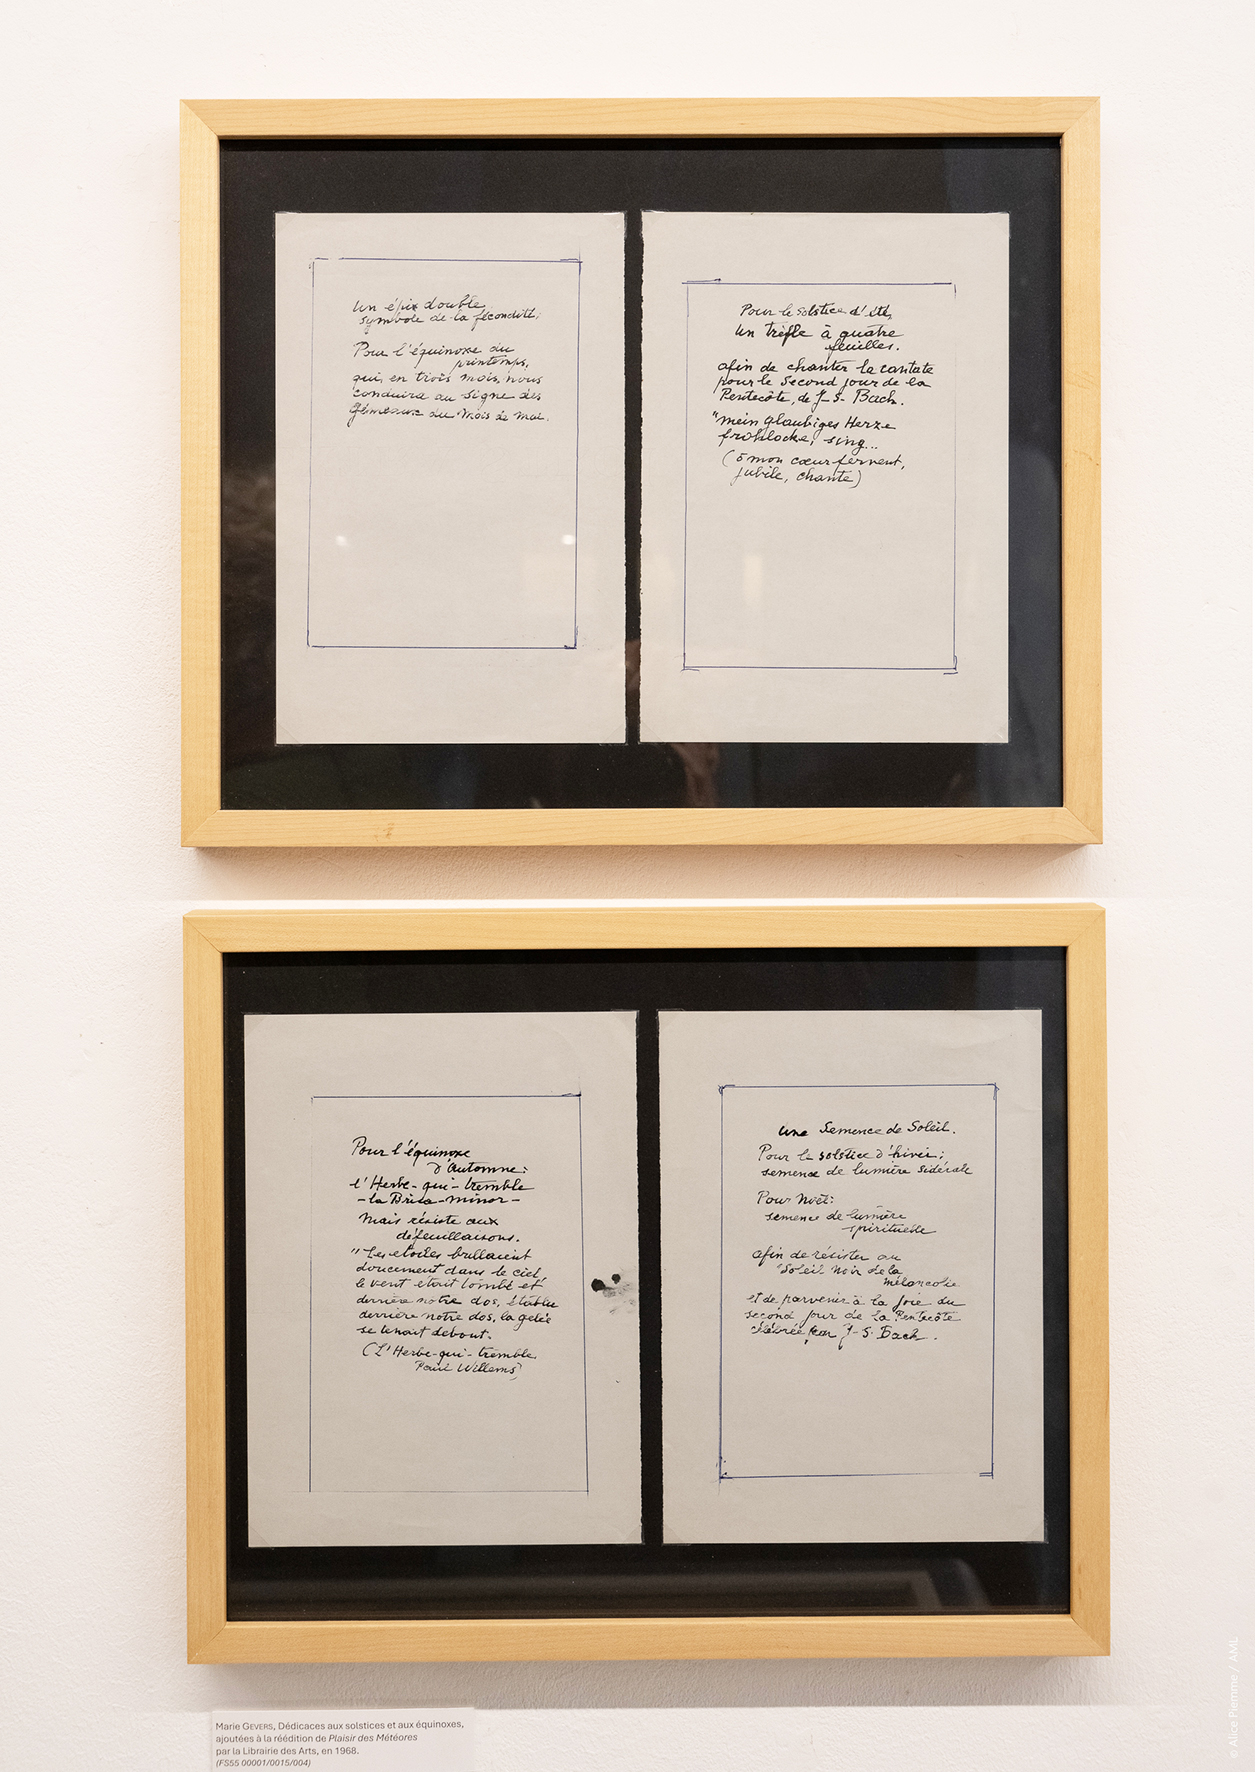 Un épix double,
symbole de la fécondité;
Pour l'équinoxe du
printemps,
qui, en trois mois, nous
conduira au signe des
Gémeaux du mois de mai.
Pour le solstice d'été,
un trèfle à quatre
feuilles.
afin de chanter la cantate
pour le second jour de la
Pentecôte, de J-S- Bach.
"mein glaubiges Herze
frohlocke, sing...
(ô mon cœur fervent,
jubile, chante)
Pour l'équinoxe
d'Automne:
l'Herbe-qui-tremble
-la Brisa-minor-
mais résiste aux
défeuillaisons.
"Les étoiles brillaient
doucement dans le ciel,
le vent était tombé et
derrière notre dos, établie
derrière notre dos, la gelée
se tenait debout.
(L'Herbe-qui-tremble
Paul Willems)
une Semence de Soleil.
Pour le solstice d'hiver;
semence de lumière sidérale
Pour Noël:
semence de lumière
spirituelle
afin de résister au
"Soleil noir de la
mélancolie
et de parvenir à la joie du
second jour de la Pentecôte
célébrée par J-S-Bach.
Marie GEVERS, Dédicaces aux solstices et aux équinoxes,
ajoutées à la réédition de Plaisir des Météores
par la Librairie des Arts, en 1968.
(FS55 00001/0015/004)
© Alice Piemme / AML